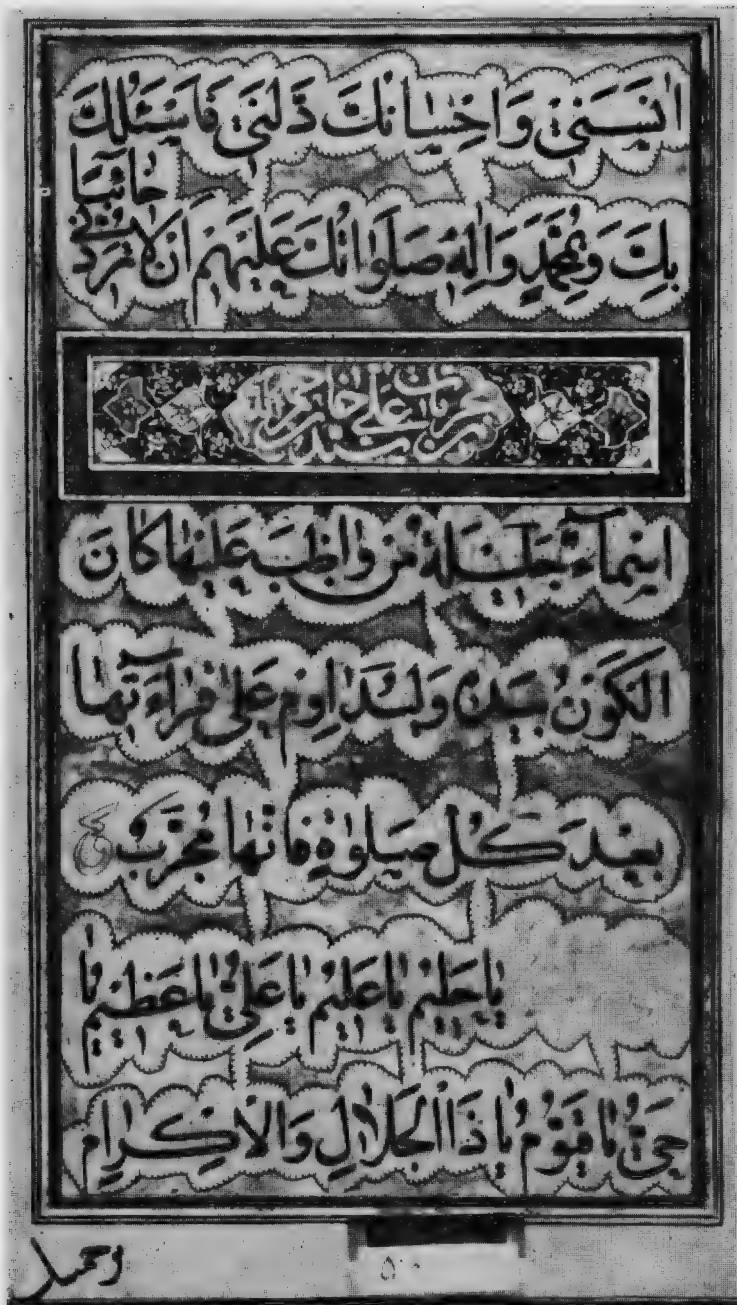 انسني واحسانك دلني فاسئلك
بك وبمحمد واله صلواتك عليهم ان لا تردني
خائبا
مجربات علي خان
اسماء جليلة من واظب عليها كان
الكون بيده وليداوم على قراءتها
بعد كل صلوة فانها مجرب
يا حليم يا عليم يا علي يا عظيم يا
حي يا قيوم يا ذا الجلال والاكرام